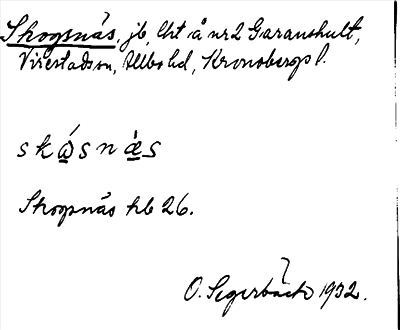 Skogsnäs, jb, lht å nr 2 Garanshult,
Virestads sn, Allbo hd, Kronobergs l.
skǻsnæ̀s
Skogsnäs hb 26.
O. Segerbäck 1932.